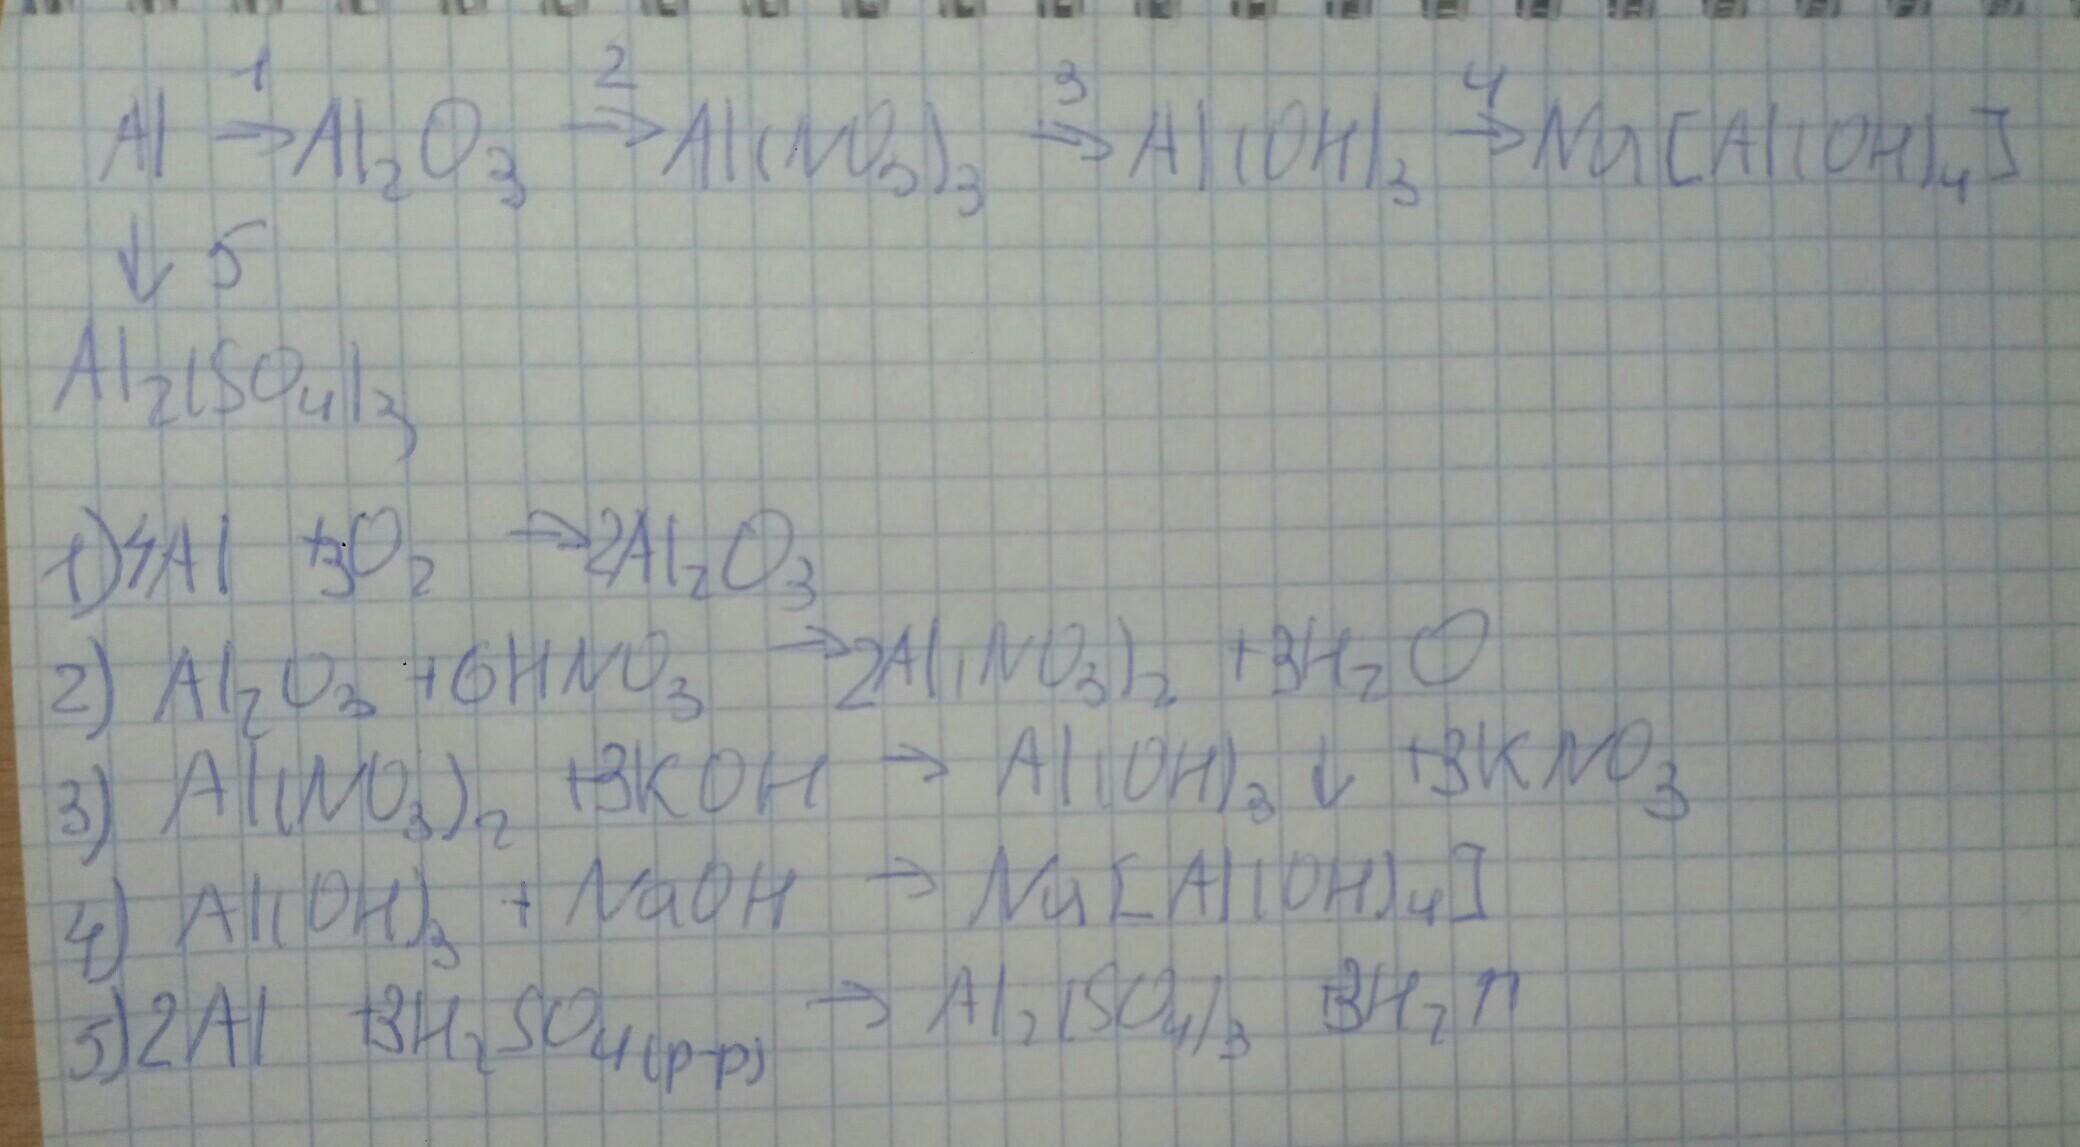 1 2 3 4
Al → Al₂O₃ → Al(NO₃)₃ → Al(OH)₃ → Na[Al(OH)₄]
↓ 5
Al₂(SO₄)₃
1) 4Al +3O₂ → 2Al₂O₃
2) Al₂O₃ +6HNO₃ → 2Al(NO₃)₂ +3H₂O
3) Al(NO₃)₂ +3KOH → Al(OH)₃ ↓ +3KNO₃
4) Al(OH)₃ + NaOH → Na[Al(OH)₄]
5) 2Al +3H₂SO₄(р-р) → Al₂(SO₄)₃ +3H₂ ↑